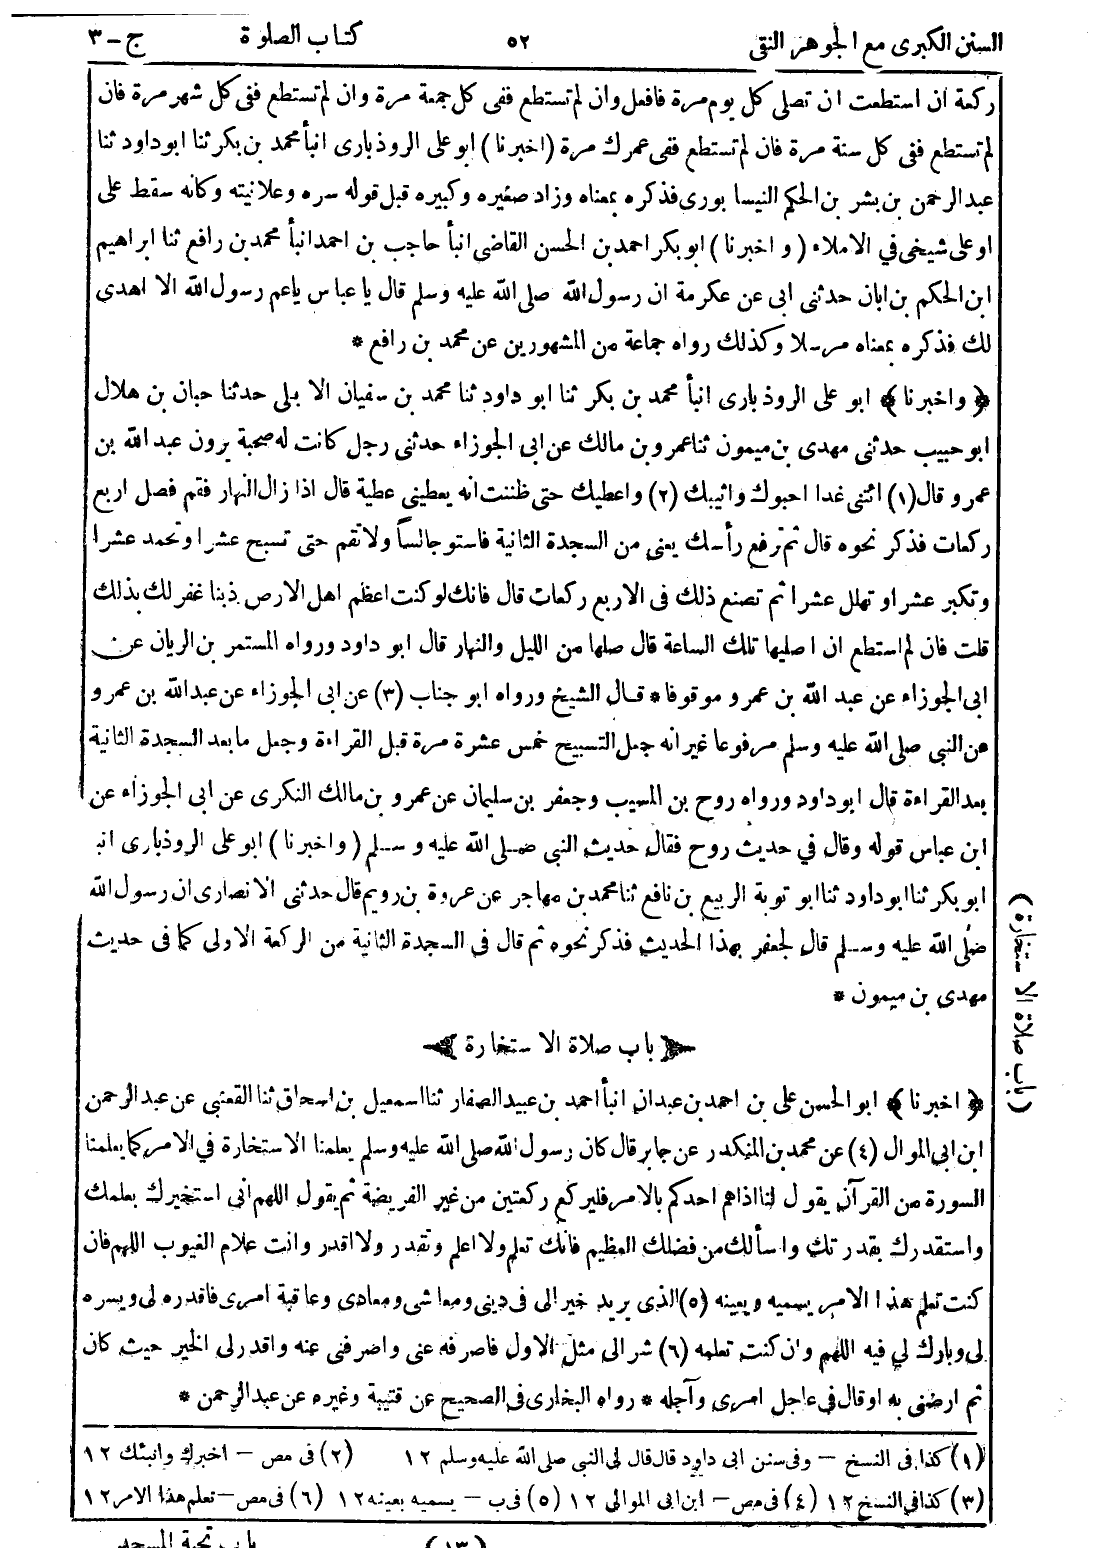 السنن الكبرى مع الجوهر النقى ٥٢ كتاب الصلوة ج - ٣
ركعة ان استطعت ان تصلى كل يوم مرة فافعل وان لم تستطع ففى كل جمعة مرة وان لم تستطع ففى كل شهر مرة فان
لم تستطع ففى كل سنة مرة فان لم تستطع ففى عمرك مرة (اخبرنا) ابو على الروذبارى انبأ محمد بن بكر ثنا ابو داود ثنا
عبد الرحمن بن بشر بن الحكم النيسا بورى فذكره بمعناه وزاد صغيره وكبيره قبل قوله سره وعلانيته وكانه سقط على
او على شيخى في الاملاء (و اخبرنا) ابو بكر احمد بن الحسن القاضى انبأ حاجب بن احمد انبأ محمد بن رافع ثنا ابراهيم
ابن الحكم بن ابان حدثنى ابى عن عكرمة ان رسول الله صلى الله عليه وسلم قال يا عباس يا عم رسول الله الا اهدى
لك فذكره بمعناه مرسلا وكذلك رواه جماعة من المشهورين عن محمد بن رافع *
﴿ واخبرنا ﴾ ابو على الروذبارى انبأ محمد بن بكر ثنا ابو داود ثنا محمد بن سفيان الا بلى حدثنا حبان بن هلال
ابو حبيب حدثنى مهدى بن ميمون ثنا عمرو بن مالك عن ابى الجوزاء حدثنى رجل كانت له صحبة يرون عبد الله بن
عمرو قال (١) ائتنى غدا احبوك واثيبك (٢) واعطيك حتى ظننت انه يعطينى عطية قال اذا زال النهار فقم فصل اربع
ركعات فذكر نحوه قال ثم ترفع رأسك يعنى من السجدة الثانية فاستو جالساً ولا تقم حتى تسبح عشرا وتحمد عشرا
وتكبر عشرا وتهلل عشرا ثم تصنع ذلك فى الاربع ركعات قال فانك لو كنت اعظم اهل الارض ذنبا غفر لك بذلك
قلت فان لم استطع ان اصليها تلك الساعة قال صلها من الليل والنهار قال ابو داود ورواه المستمر بن الريان عن
ابى الجوزاء عن عبد الله بن عمرو موقوفا * قال الشيخ ورواه ابو جناب (٣) عن ابى الجوزاء عن عبد الله بن عمرو
عن النبى صلى الله عليه وسلم مرفوعا غير انه جعل التسبيح خمس عشرة مرة قبل القراءة وجعل ما بعد السجدة الثانية
بعد القراءة قال ابو داود ورواه روح بن المسيب وجعفر بن سليمان عن عمرو بن مالك النكرى عن ابى الجوزاء عن
ابن عباس قوله وقال في حديث روح فقال حديث النبى صلى الله عليه وسلم (واخبرنا) ابو على الروذبارى انبـ
ابو بكر ثنا ابو داود ثنا ابو توبة الربيع بن نافع ثنا محمد بن مهاجر عن عروة بن رويم قال حدثنى الانصارى ان رسول الله
صلى الله عليه وسلم قال لجعفر بهذا الحديث فذكر نحوه ثم قال فى السجدة الثانية من الركعة الاولى كما فى حديث
مهدى بن ميمون *
باب صلاة الاستخارة
(باب صلاة الاستخارة)
﴿ اخبرنا ﴾ ابو الحسن على بن احمد بن عبدان انبأ احمد بن عبيد الصفار ثنا اسمعيل بن اسحاق ثنا القعنبى عن عبد الرحمن
ابن ابى الموال (٤) عن محمد بن المنكدر عن جابر قال كان رسول الله صلى الله عليه وسلم يعلمنا الاستخارة في الامر كما يعلمنا
السورة من القرآن يقول لنا اذا هم احدكم بالامر فليركع ركعتين من غير الفريضة ثم يقول اللهم انى استخيرك بعلمك
واستقدرك بقدرتك واسألك من فضلك العظيم فانك تعلم ولا اعلم وتقدر ولا اقدر وانت علام الغيوب اللهم فان
كنت تعلم هذا الامر يسميه ويعينه (٥) الذى يريد خير الى فى دينى ومعاشى ومعادى وعاقبة امرى فاقدره لى ويسره
لى وبارك لي فيه اللهم وان كنت تعلمه (٦) شر الى مثل الاول فاصرفه عنى واصرفنى عنه واقدر لى الخير حيث كان
ثم ارضنى به او قال في عاجل امرى وآجله * رواه البخارى فى الصحيح عن قتيبة وغيره عن عبد الرحمن *
(١) كذا فى النسخ - وفى سنن ابى داود قال قال لى النبى صلى الله عليه وسلم ١٢ (٢) فى مص - اخبرك وانبئك ١٢
(٣) كذا في النسخ ١٢ (٤) فى مص - ابن ابى الموالى ١٢ (٥) فى ب - يسميه بعينه ١٢ (٦) فى مص - تعلم هذا الامر ١٢
(١٣) باب تحية المسجد